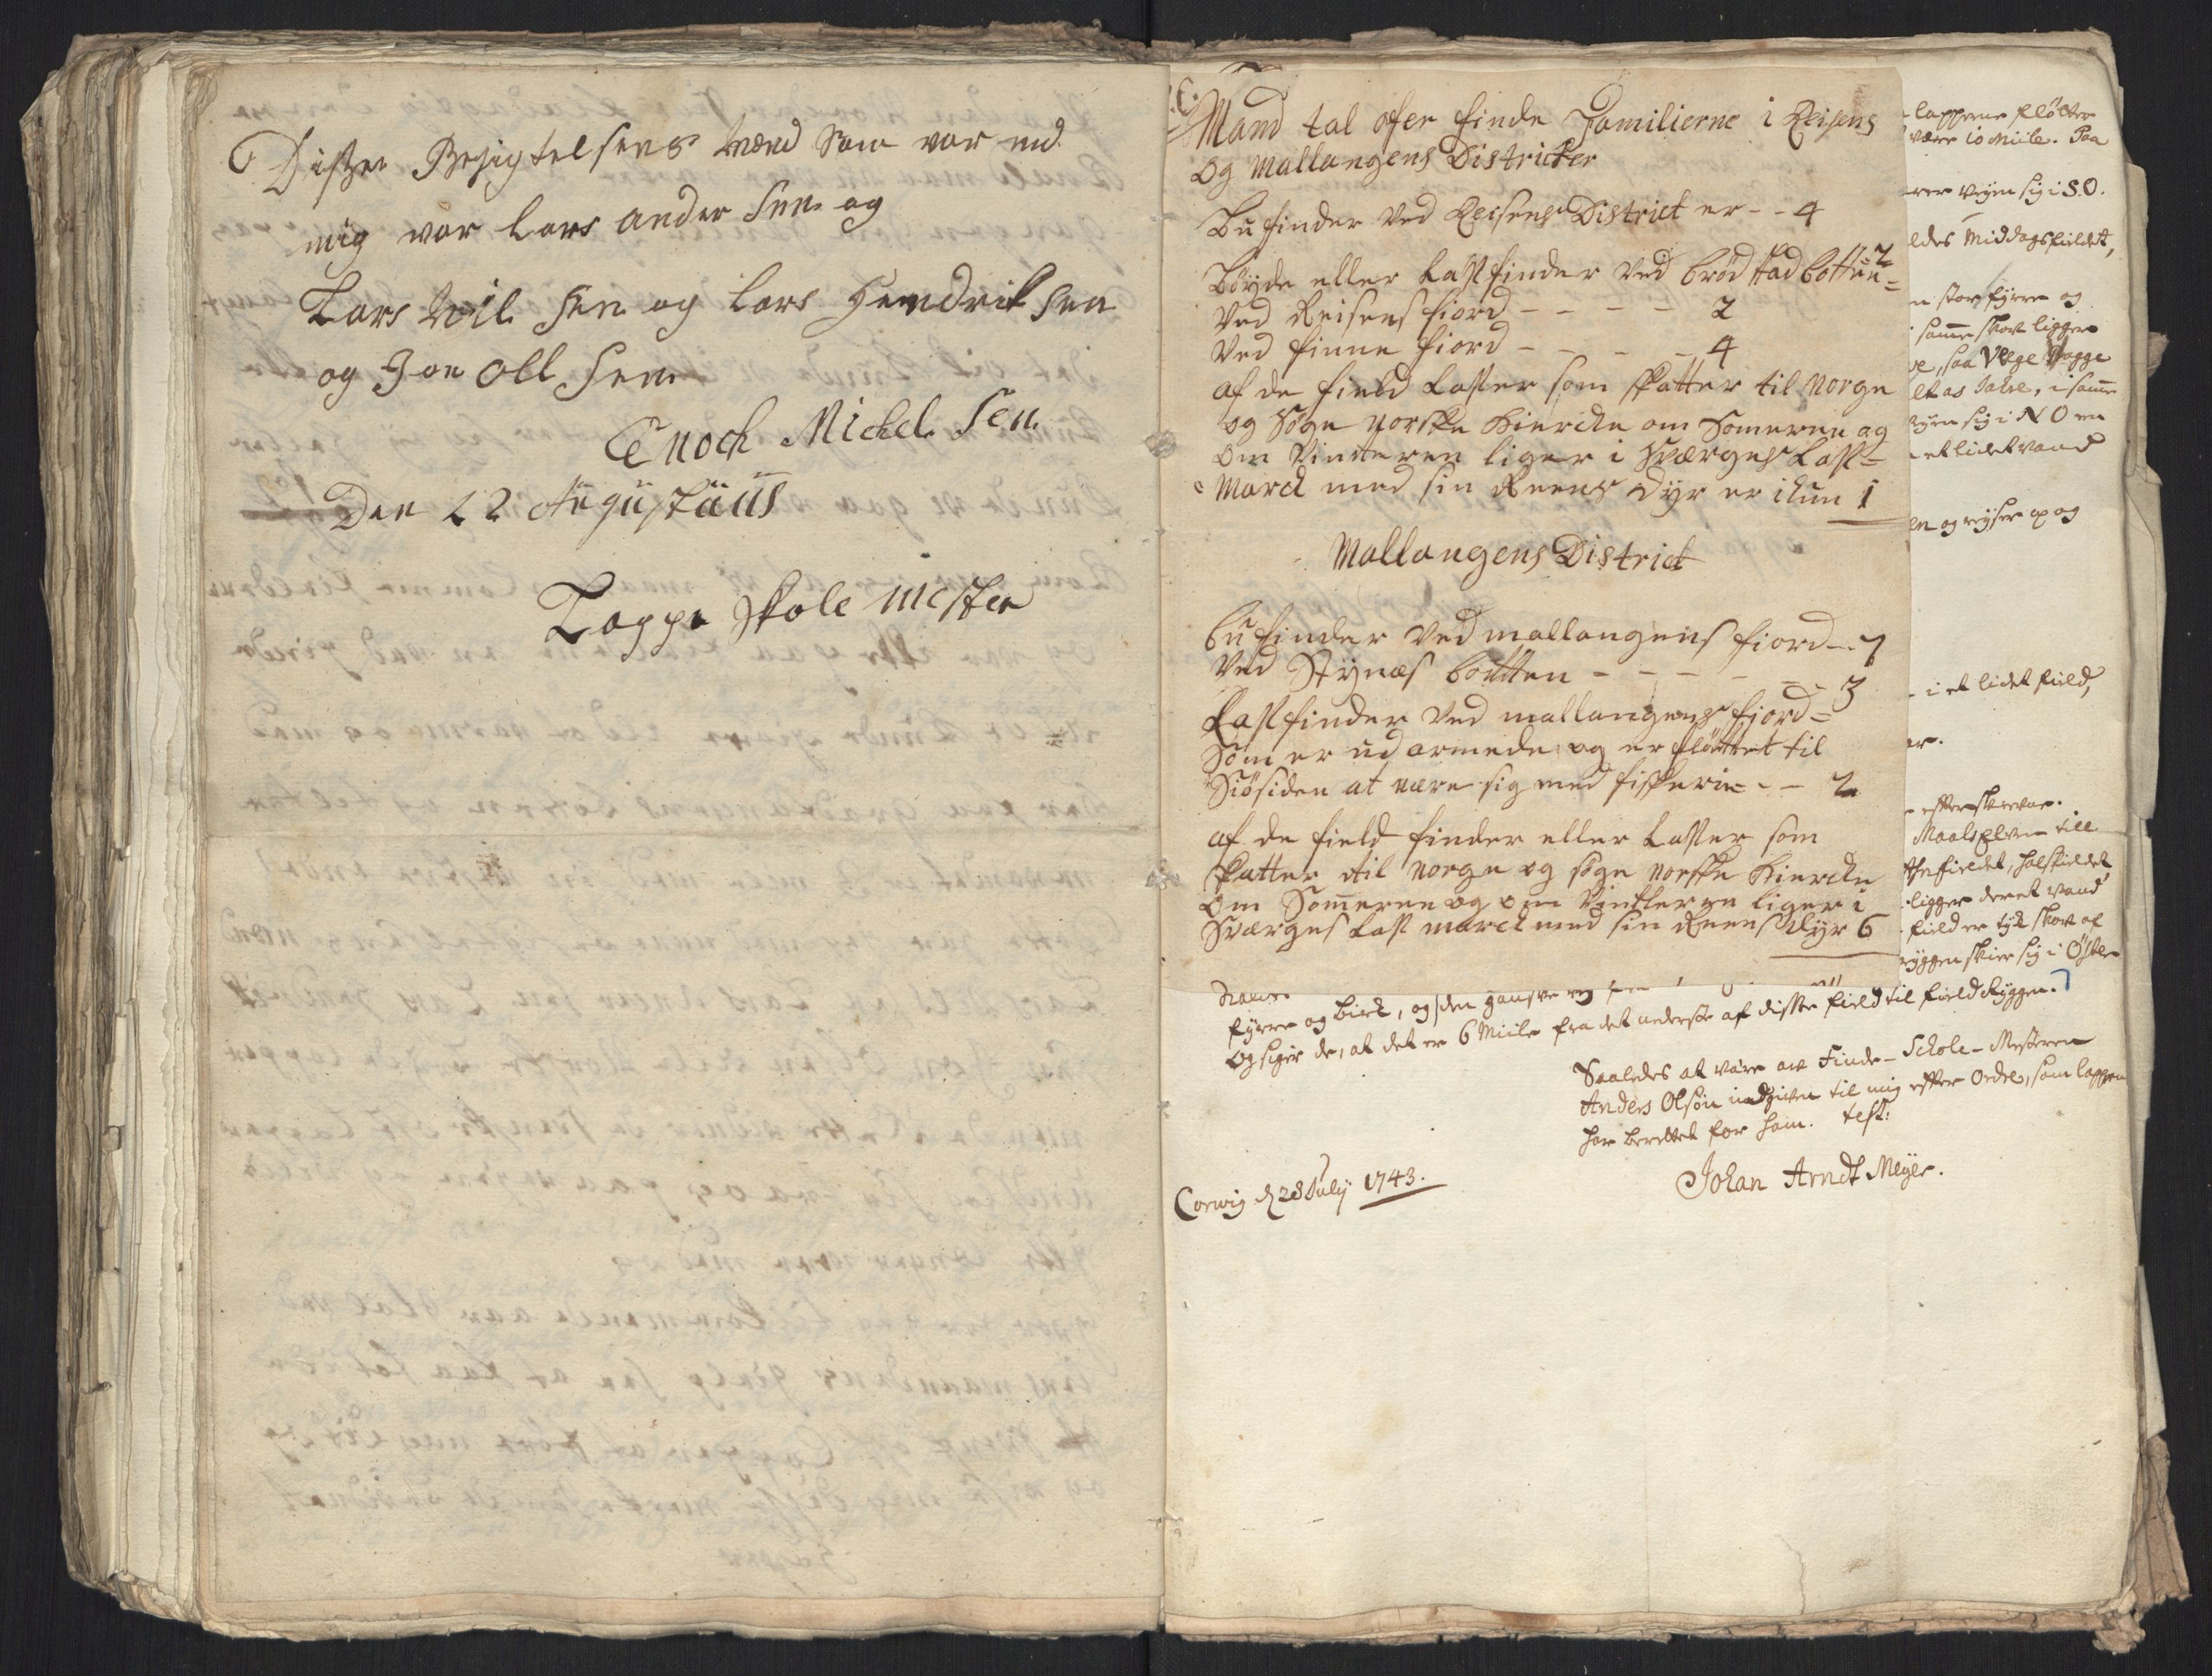 Disse Besigtelsens Mænd Som var med
mig var Lars Ander Sen og
Lars Nil Sen og Lars Hendrik Sen
og Jon Oll Sen
Enoch Michel Sen
Den 22 Augustüüs
Lappe Skole Mester
C.
Mand tal ofer finde Familierne i Reisens
og Mallangens Districter
Bufinder ved Reisens District er - - 4
Böyde eller Lassfinder ved brödstadbotten = 2
Ved Reisens fiord - - - - 2
Ved finne fiord - - - - 4
af de field Lasser som skatter til Norge
og Söge Norske Kiercke om Someren og
om Vinteren liger i Sværges Lass=
Marck med sin Reens dyr er ikun 1
Mallangens District
bufinder ved mallangens fiord - - 7
Ved Stÿnæs botten - - - - - - 3
Lassfinder ved mallangens fiord =
Som er ud armede og er flöttet til
Siösiden at nære sig med fiskerie - - 2
af de field finder eller Lasser som
skatter til Norge og söge Norske Kiercke
om Someren og om Vintteren liger i
Sværges Lass marck med sin Reens dyr 6
lapperne flötter
være 10 Miile. Paa
vejen sig i S.O.
Middagsfieldet,
stor fyrre og
i samme skov ligger
saa Vege Vagge
Jakre, i samme
sig i N O en
et lidet vand
og reyser op og
i et lidet field,
er.
efterskrevne.
Maalselven till
fieldet, halsfieldet
ligger der et vand
field er tyk skov af
ryggen skier sig i Öster
fyrre og birk, og den ganske
Og siger de, at det er 6 Miile fra det nederste af disse field til field Ryggen.
Saaledes at være av Finde-Schole-Mesteren
Anders Olsön indgiven til mig efter Ordre, som lappen
har berettet for ham. test:
Johan Arndt Meyer.
Corvig d 28 July 1743.